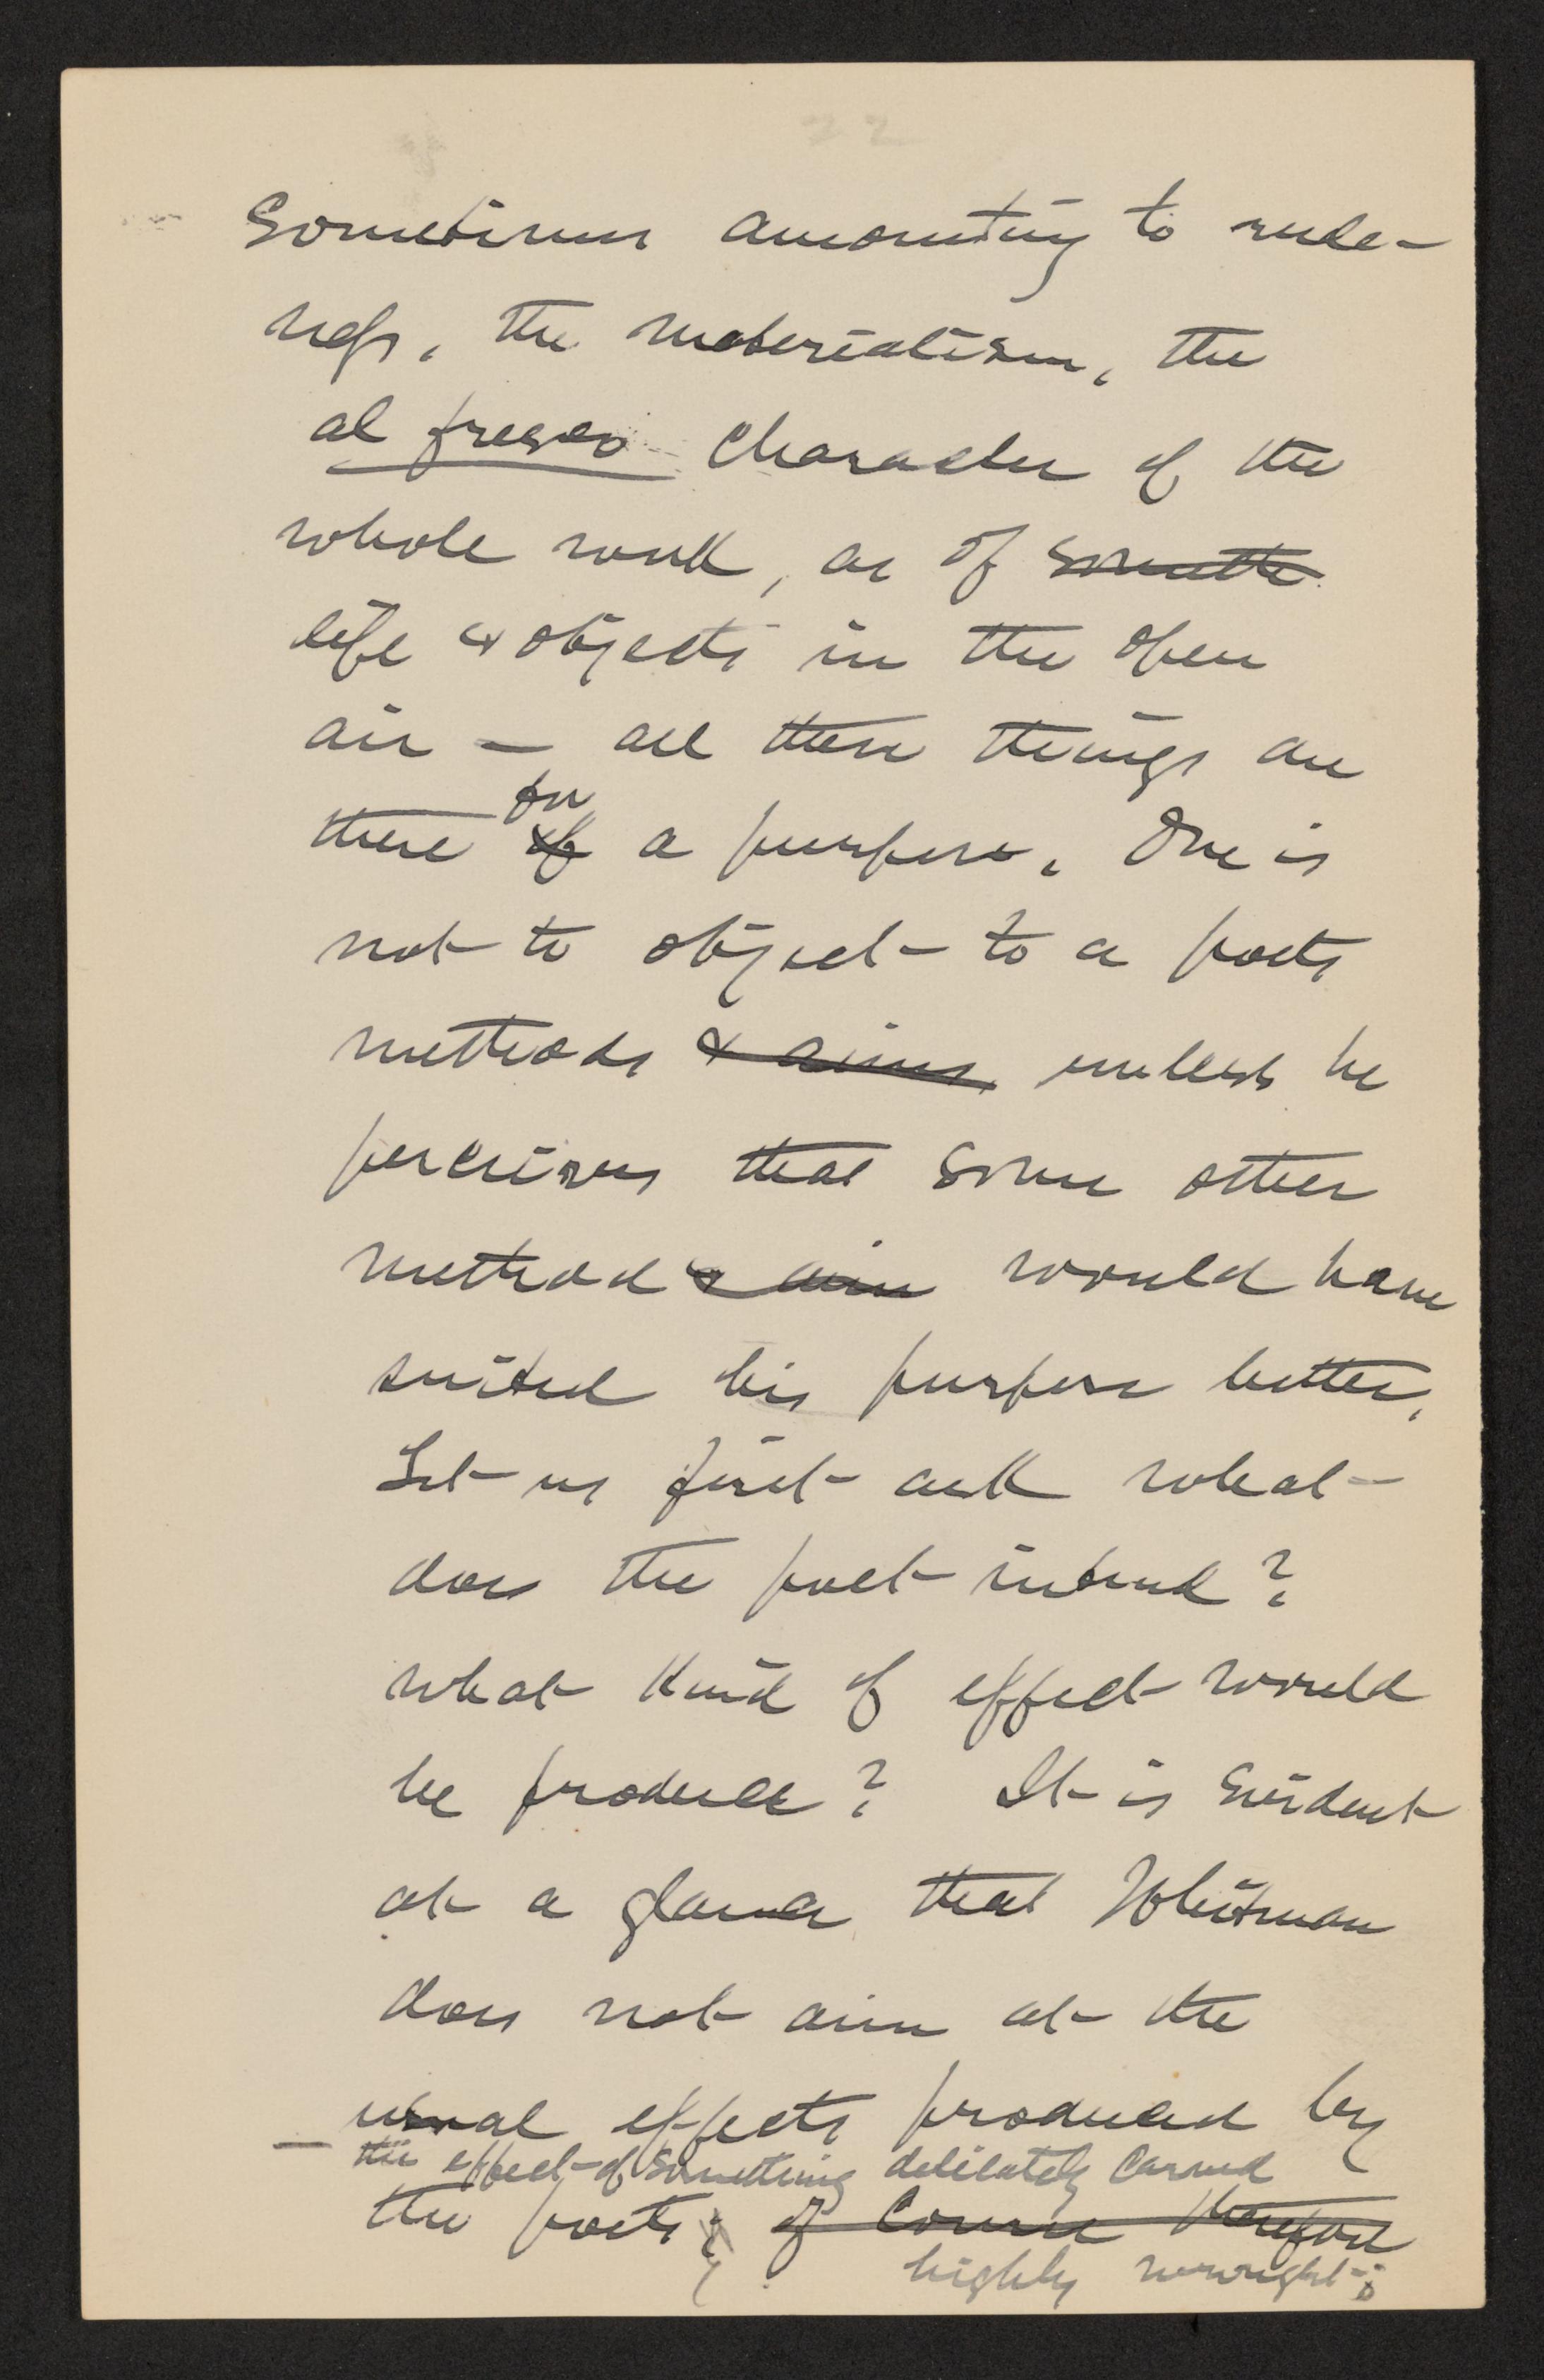 22
Sometimes amounting to rude-
ness, the materialism, the
al fresco character of the
whole work, as of
life & objects in the open
air — all these things are
for
there of a purpose. One is
not to object to a poets
methods & aims unless he
perceives that some other
method & aim would have
suited his purpose better.
Let us first ask what
does the poet intend?
what kind of effect would
he produce? It is evident
at a glance that Whitman
does not aim at the
usual effects produced by
— the effect of something delicately carved
the poets; of course therefore
highly wrought;